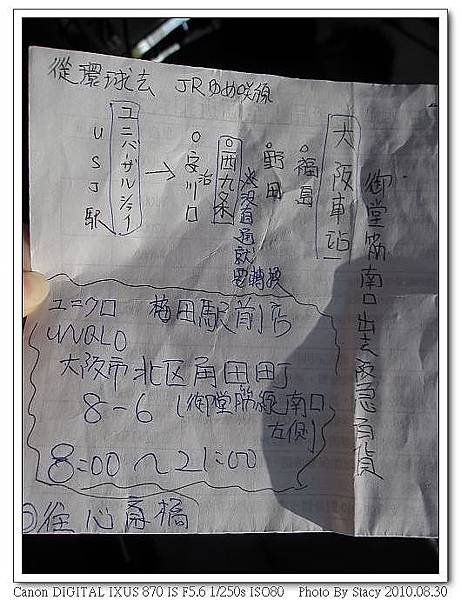 從環球去 JRゆめ咲線
ユニバサルシティ
USJ駅
→
安治川口
西九条
沒有直通就要轉換
野田
福島
大阪車站
御堂筋南口出去阪急百貨
ユニクロ 梅田駅前店
UNIQLO
大阪市北区角田町
8-6 (御堂筋線南口
左側)
8:00~21:00
往心齋橋
Canon DIGITAL IXUS 870 IS F5.6 1/250s ISO80 Photo By Stacy 2010.08.30